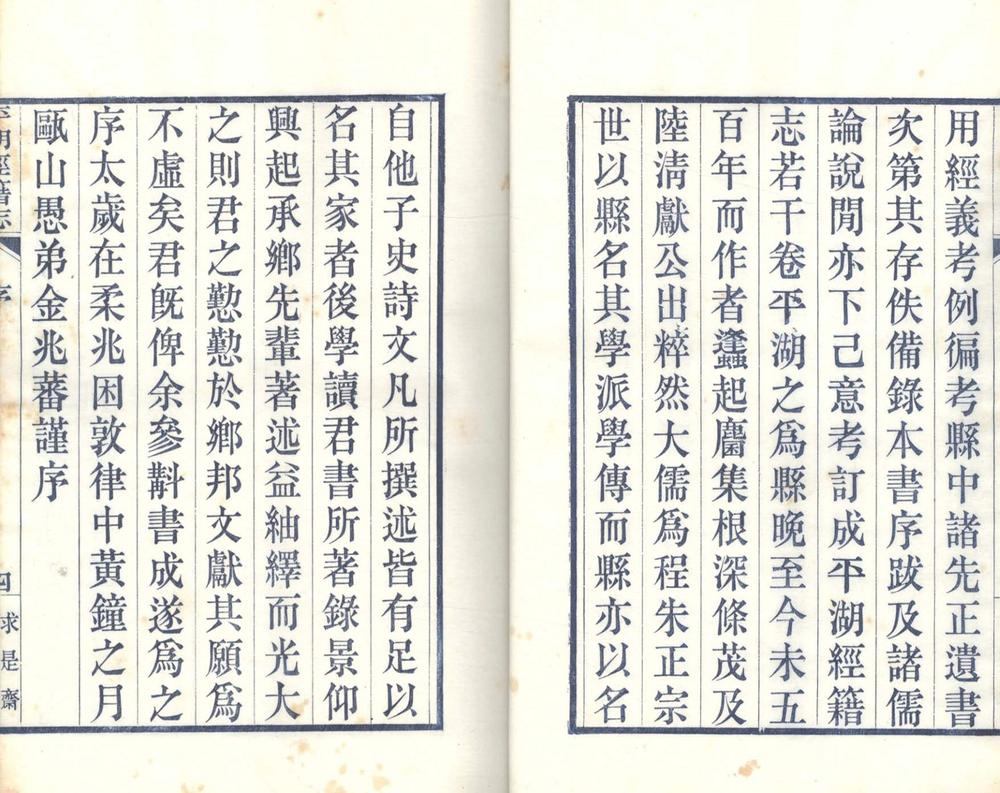 用經義考例徧考縣中諸先正遺書
次第其存佚備錄本書序跋及諸儒
論說閒亦下己意考訂成平湖經籍
志若干卷平湖之爲縣晚至今未五
百年而作者蠭起麕集根深條茂及
陸淸獻公出粹然大儒爲程朱正宗
世以縣名其學派學傳而縣亦以名
自他子史詩文凡所撰述皆有足以
名其家者後學讀君書所著錄景仰
興起承鄉先輩著述益紬繹而光大
之則君之懃懃於鄉邦文獻其願爲
不虛矣君旣俾余參斠書成遂爲之
序太歲在柔兆困敦律中黃鐘之月
甌山愚弟金兆蕃謹序
經籍志
序
四
求是齋